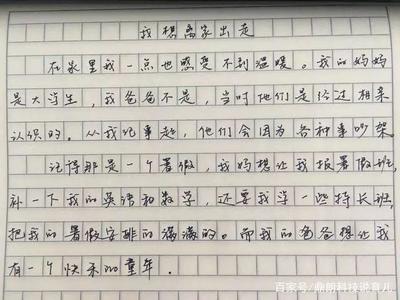 我想离家出走
在家里我一点也感受不到温暖。我的妈妈
是大学生，我爸爸不是，当时他们是经过相亲
认识的。从我记事起，他们会因为各种事吵架
记得那是一个暑假，我妈想让我报暑假班，
补一下我的英语和数学，还要我学一些特长班，
把我的暑假安排的满满的。而我的爸爸想让我
有一个快乐的童年．
百家号/鼎朗科技说育儿